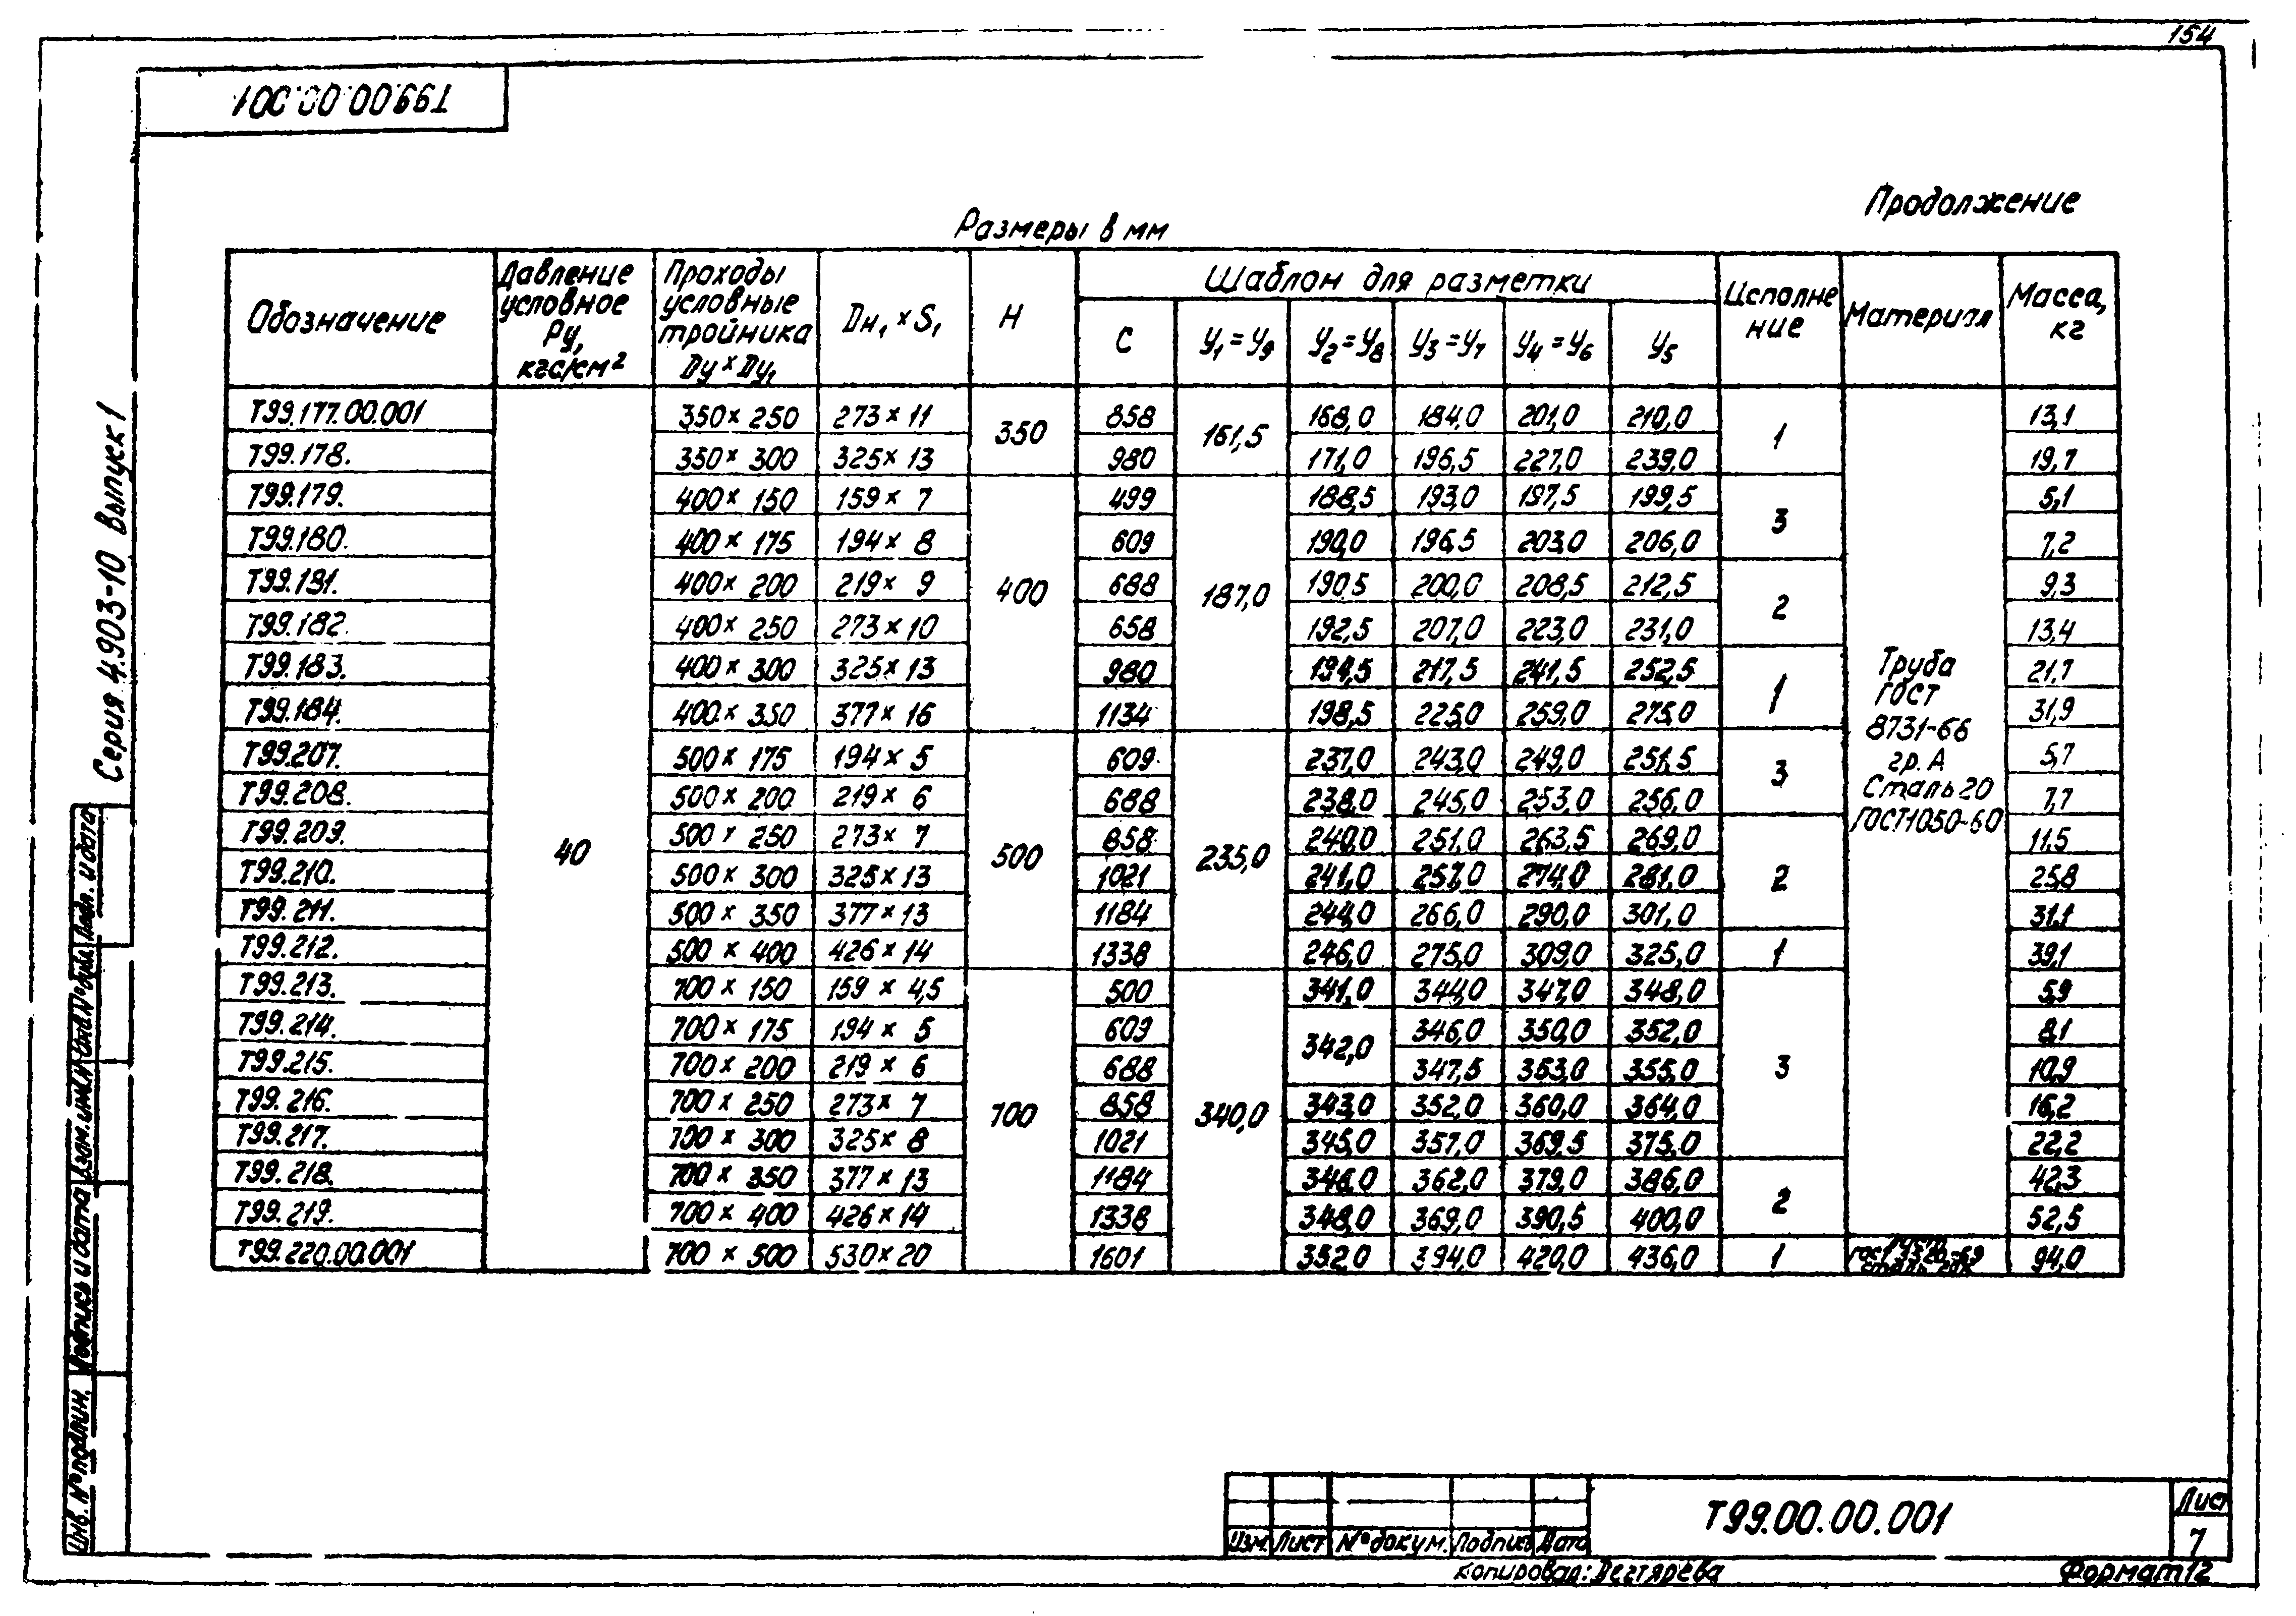 154
Т99.00.00.001
Продолжение
Размеры в мм
Обозначение | Давление условное Ру, кгс/см² | Проходы условные тройника Dу × Dу₁ | Dн₁ × S₁ | H | Шаблон для разметки | Исполне ние | Материал | Масса, кг
C | У₁ = У₉ | У₂ = У₈ | У₃ = У₇ | У₄ = У₆ | У₅
Т99.177.00.001 | 40 | 350 × 250 | 273 × 11 | 350 | 858 | 161,5 | 168,0 | 184,0 | 201,0 | 210,0 | 1 | Труба ГОСТ 8731-66 гр. А Сталь 20 ГОСТ 1050-60 | 13,1
Т99.178. | 350 × 300 | 325 × 13 | 980 | 171,0 | 196,5 | 227,0 | 239,0 | 19,7
Т99.179. | 400 × 150 | 159 × 7 | 400 | 499 | 187,0 | 188,5 | 193,0 | 197,5 | 199,5 | 3 | 5,1
Т99.180. | 400 × 175 | 194 × 8 | 609 | 190,0 | 196,5 | 203,0 | 206,0 | 7,2
Т99.181. | 400 × 200 | 219 × 9 | 688 | 190,5 | 200,0 | 208,5 | 212,5 | 2 | 9,3
Т99.182. | 400 × 250 | 273 × 10 | 658 | 192,5 | 207,0 | 223,0 | 231,0 | 13,4
Т99.183. | 400 × 300 | 325 × 13 | 980 | 194,5 | 217,5 | 241,5 | 252,5 | 1 | 21,7
Т99.184. | 400 × 350 | 377 × 16 | 1134 | 198,5 | 225,0 | 259,0 | 275,0 | 31,9
Т99.207. | 500 × 175 | 194 × 5 | 500 | 609 | 235,0 | 237,0 | 243,0 | 249,0 | 251,5 | 3 | 5,7
Т99.208. | 500 × 200 | 219 × 6 | 688 | 238,0 | 245,0 | 253,0 | 256,0 | 7,7
Т99.209. | 500 × 250 | 273 × 7 | 858 | 240,0 | 251,0 | 263,5 | 269,0 | 2 | 11,5
Т99.210. | 500 × 300 | 325 × 13 | 1021 | 241,0 | 257,0 | 274,0 | 281,0 | 25,8
Т99.211. | 500 × 350 | 377 × 13 | 1184 | 244,0 | 266,0 | 290,0 | 301,0 | 31,1
Т99.212. | 500 × 400 | 426 × 14 | 1338 | 246,0 | 275,0 | 309,0 | 325,0 | 1 | 39,1
Т99.213. | 700 × 150 | 159 × 4,5 | 700 | 500 | 340,0 | 341,0 | 344,0 | 347,0 | 348,0 | 3 | 5,9
Т99.214. | 700 × 175 | 194 × 5 | 609 | 342,0 | 346,0 | 350,0 | 352,0 | 8,1
Т99.215. | 700 × 200 | 219 × 6 | 688 | 347,5 | 353,0 | 355,0 | 10,9
Т99.216. | 700 × 250 | 273 × 7 | 858 | 343,0 | 352,0 | 360,0 | 364,0 | 16,2
Т99.217. | 700 × 300 | 325 × 8 | 1021 | 345,0 | 357,0 | 369,5 | 375,0 | 22,2
Т99.218. | 700 × 350 | 377 × 13 | 1184 | 346,0 | 362,0 | 379,0 | 386,0 | 2 | 42,3
Т99.219. | 700 × 400 | 426 × 14 | 1338 | 348,0 | 369,0 | 390,5 | 400,0 | 52,5
Т99.220.00.001 | 700 × 500 | 530 × 20 | 1601 | 352,0 | 394,0 | 420,0 | 436,0 | 1 | 94,0
Серия 4.903-10 Выпуск 1
Инв. № подлин.
Подпись и дата
Взам. инв. №
Инв. № дубл.
Подп. и дата
Изм. Лист № докум. Подпись Дата
Т99.00.00.001
Лист
7
Копировал: Дегтярева
Формат 12